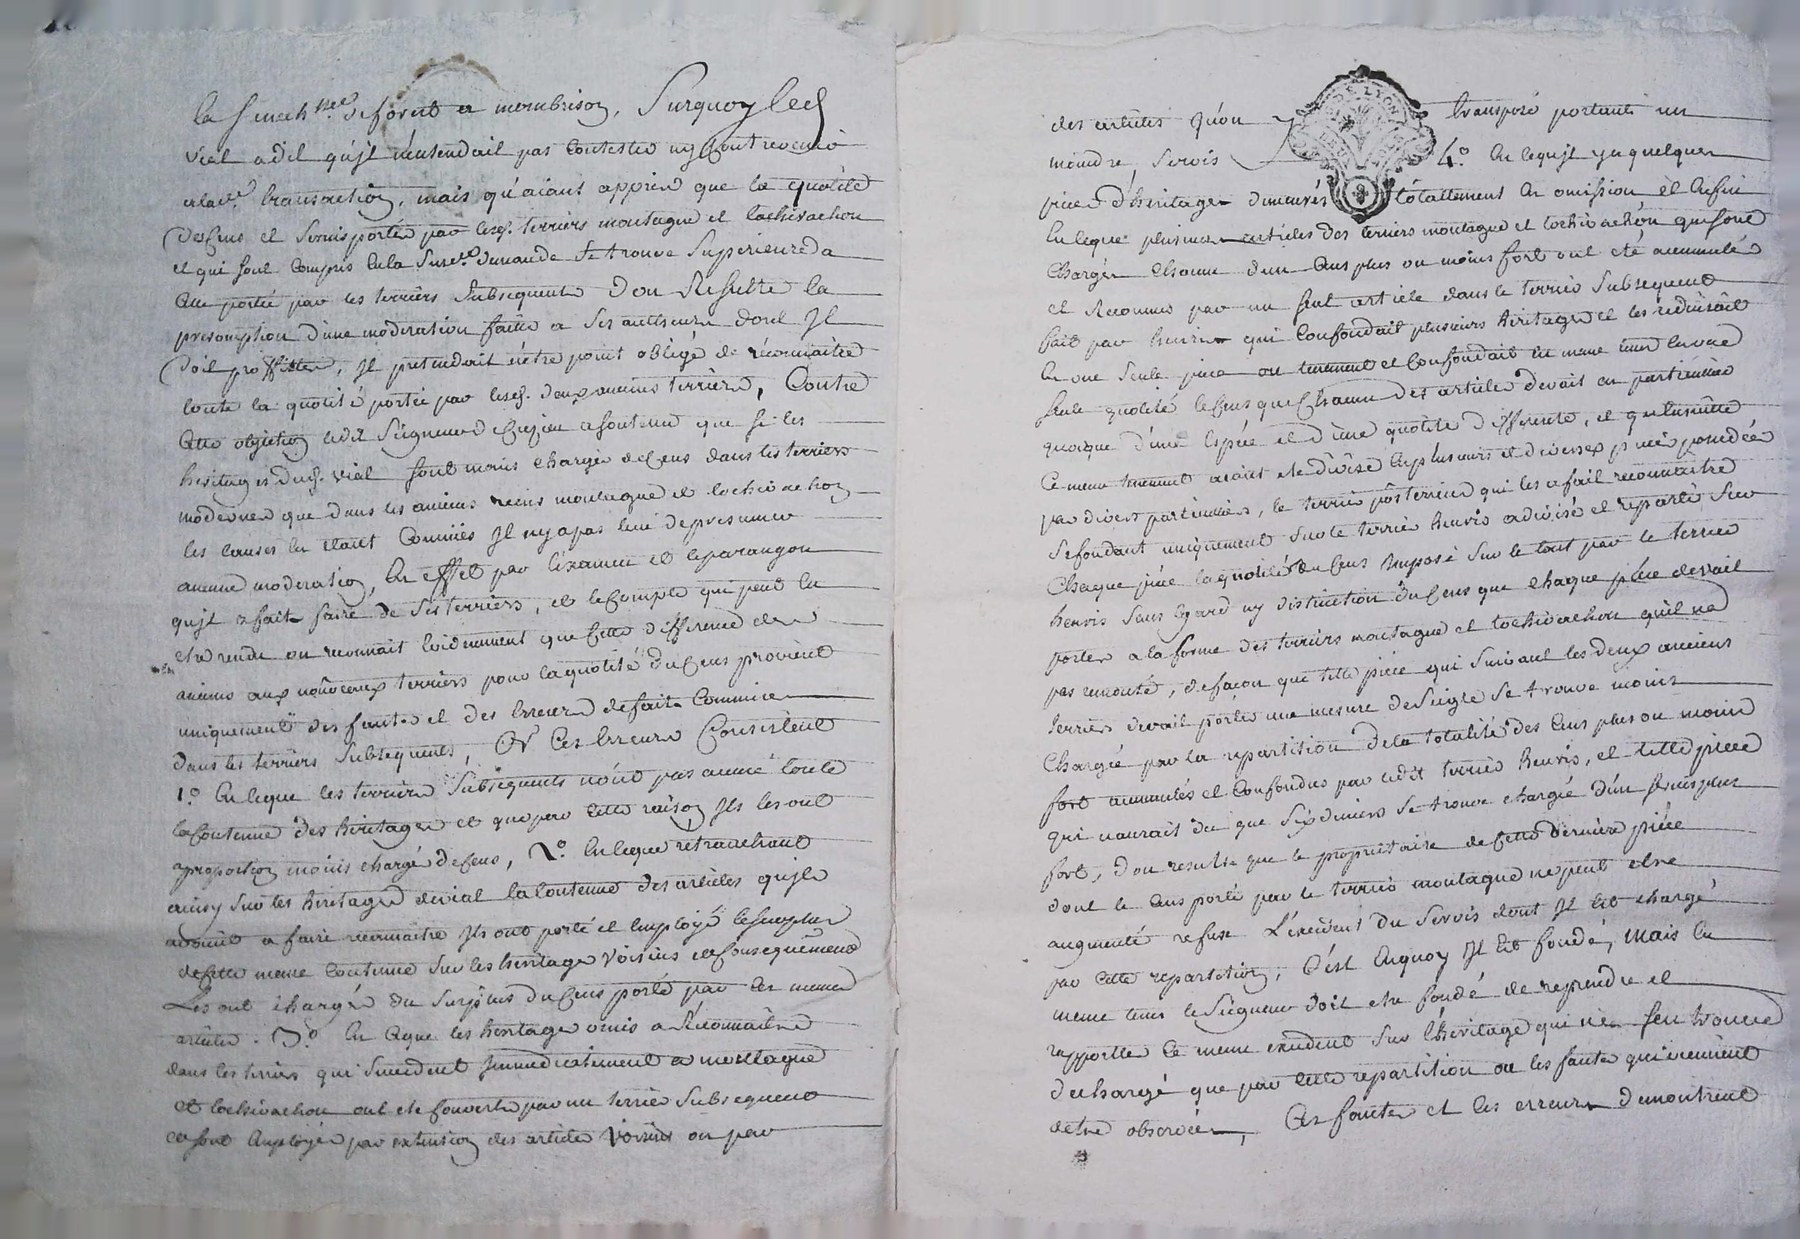 la Senech.ée de forest a monbrison, Surquoy led.
vial a dit qu'jl n'entendait pas Contester ny Contrevenir
a lad.e transaction, mais qu'aiant appris que la quotité
des Cens et Servis portée par lesd. terriers montagne et tochivachon
et qui sont Compris en la Susd.e demande Se trouve Superieure a
Celle portée par les terriers Subsequents d'ou Resulte la
presomption d'une moderation faitte a Ses autheurs dont Jl
doit proffitter, Jl pretendait n'etre point obligé de réconnaitre
toute la quotité portée par lesd. deux anciens terriers, Contre
Cette objection ledit Seigneur a soutenu que si les
heritages dud. vial sont moins chargés de Cens dans les terriers
modernes que dans les anciens recus montagne et tochivachon
les causes en etant Connües Jl n'y a pas lieu de presumer
aucune moderation, En effet par l'examen et le parangon
qu'jl a fait faire de Ses terriers, et le Compte qui peut en
etre rendu on reconnait Evidemment que Cette difference des
anciens aux nouveaux terriers pour la quotité du Cens provient
uniquement des fautes et des Erreurs de fait Commises
dans les terriers Subsequents, Or Ces Erreurs Consistent
1.° En ce que les terriers Subsequents n'ont pas animé toute
la Contenue des heritages et que par Cette raison Jls les ont
a proportion moins chargé de Cens, 2.° En ce que retranchant
ainsy Sur les heritages de vial la Contenue des articles qu'jls
avoint a faire reconnaitre Jls ont porté et Employé le Surplus
de Cette meme Contenue Sur les heritages voisins et Consequemment
Les ont chargés du Surplus du Cens porté par Ces memes
articles. 3.° En ce que les heritages omis a Réconnaitre
dans les terriers qui Succedent Jmmediatement a montagne
et tochivachon ont eté Couverts par un terrier Subsequent
et sont Employés par extension des articles voisins ou par
des articles qu'on y transposé portants un
moindre Servis 4.° En ce qu'jl y a quelques
pieces d'heritages demeurés totallement en omission et Enfin
En ce que plusieurs articles des terriers montagne et tochivachon qui sont
Chargés Chacun d'un Cens plus ou moins fort ont eté accumulés
et Reconnus par un Seul article dans le terrier Subsequent
fait par henris qui Confondait plusieurs heritages et les reduisait
en une Seule piece ou tenement et Confondait en meme tems en une
Seule quotité le Cens que Chacun des articles devait en particulier
quoique d'une Espece et d'une quotité differente, et qu'ensuitte
Ce meme tenement aiant eté divisé en plusieurs et diverses pieces possedées
par divers particuliers, le terrier posterieur qui les a fait reconnaitre
Se fondant uniquement Sur le terrier henris a divisé et reparti Sur
Chaque piece la quotité du Cens Imposé Sur le tout par le terrier
henris Sans Egard ny distinction du Cens que chaque piece devait
porter a la forme des terriers montagne et tochivachon qu'il n'a
pas remonté, de façon que telle piece qui Suivant les deux anciens
terriers devait porter une mesure de Seigle Se trouve moins
Chargée par la repartition de la totalité des Cens plus ou moins
fort accumulés et Confondus par ledit terrier henris, et telle piece
qui n'aurait du que Six deniers Se trouve chargée d'un Servis plus
fort, d'ou resulte que le proprietaire de Cette derniere piece
dont le Cens porté par le terrier montagne ne peut etre
augmenté refuse l'excedent du Servis dont Jl Est chargé
par Cette repartition, C'est En quoy Jl Est fondé, Mais En
meme tems le Seigneur doit etre fondé de reprendre et
rapporter Ce meme excedent Sur l'heritage qui ne s'en trouve
dechargé que par Cette repartition ou les fautes qui viennent
d'etre observées, Ces fautes et Ces erreurs demontrent
DE LYON